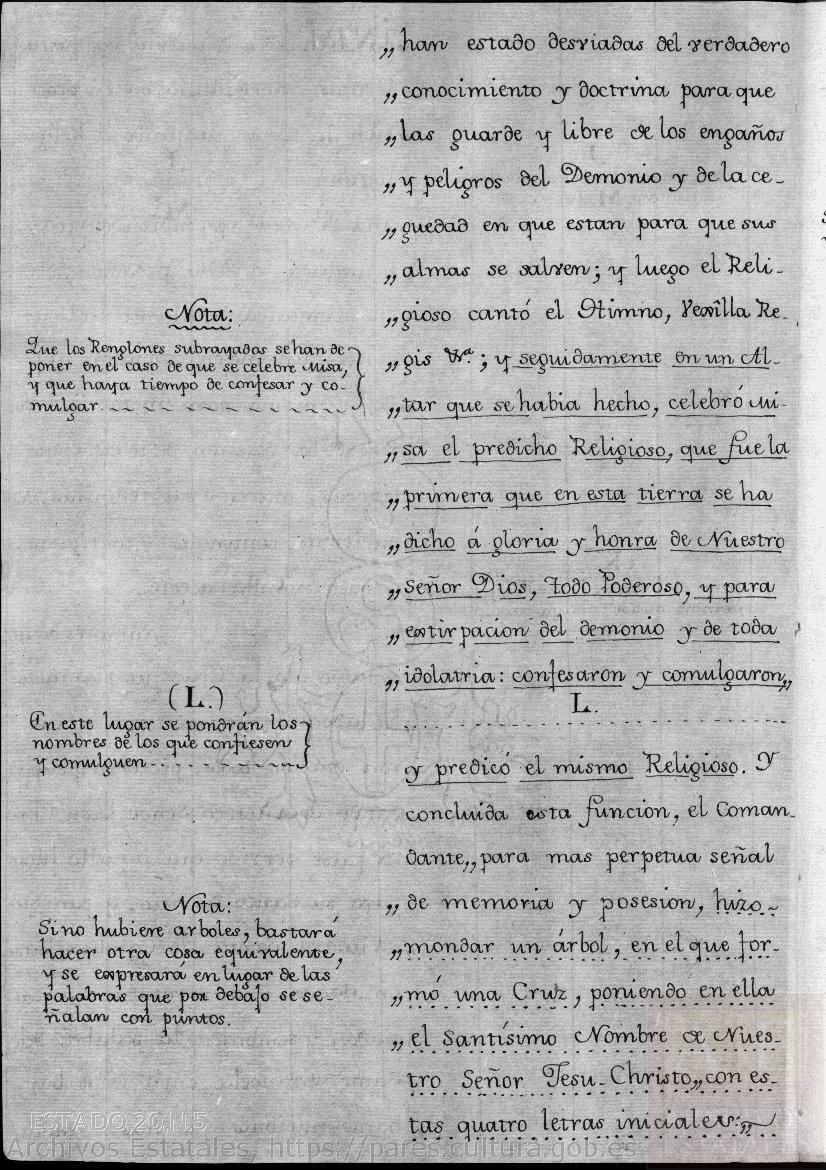 „han estado desviadas del verdadero
„conocimiento y doctrina para que
„las guarde y libre de los engaños
„y peligros del Demonio y de la ce-
„guedad en que estan para que sus
„almas se salven; y luego el Reli-
„gioso cantó el Himno, Vexîlla Re-
„gis &ª.; y seguidamente en un Al-
„tar que se habia hecho, celebró Mi-
„sa el predicho Religioso, que fue la
„primera que en esta tierra se ha
„dicho á gloria y honra de Nuestro
„Señor Dios, todo Poderoso, y para
„extirpacion del demonio y de toda
„idolatria: confesaron y comulgaron„
L.
y predicó el mismo Religioso. Y
concluida esta función, el Coman-
dante„ para mas perpetua señal
„de memoria y posesion, hizo-
„mondar un árbol, en el que for-
„mó una Cruz, poniendo en ella
„el Santísimo Nombre de Nues-
tro Señor Jesu-Christo„ con es-
tas quatro letras iniciales:„
Nota:
Que los Renglones subrayados se han de
poner en el caso de que se celebre Misa,
y que haya tiempo de confesar y co-
mulgar.
(L.)
En este lugar se pondrán los
nombres de los que confiesen
y comulguen
Nota:
Si no hubiere arboles, bastará
hacer otra cosa equivalente,
y se expresará en lugar de las
palabras que por debajo se se-
ñalan con puntos.
ESTADO,20,N.5
Archivos Estatales, https://pares.cultura.gob.es